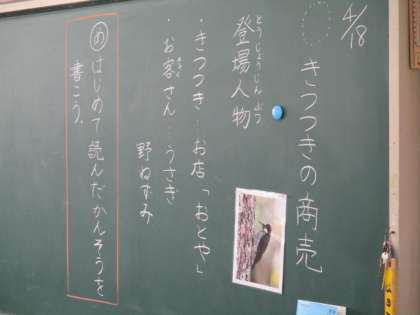 4/18
きつつきの商売
登場人物
とうじょうじんぶつ
・きつつき…お店「おとや」
・お客さん…うさぎ
きゃく
野ねずみ
め はじめて読んだかんそうを
書こう。